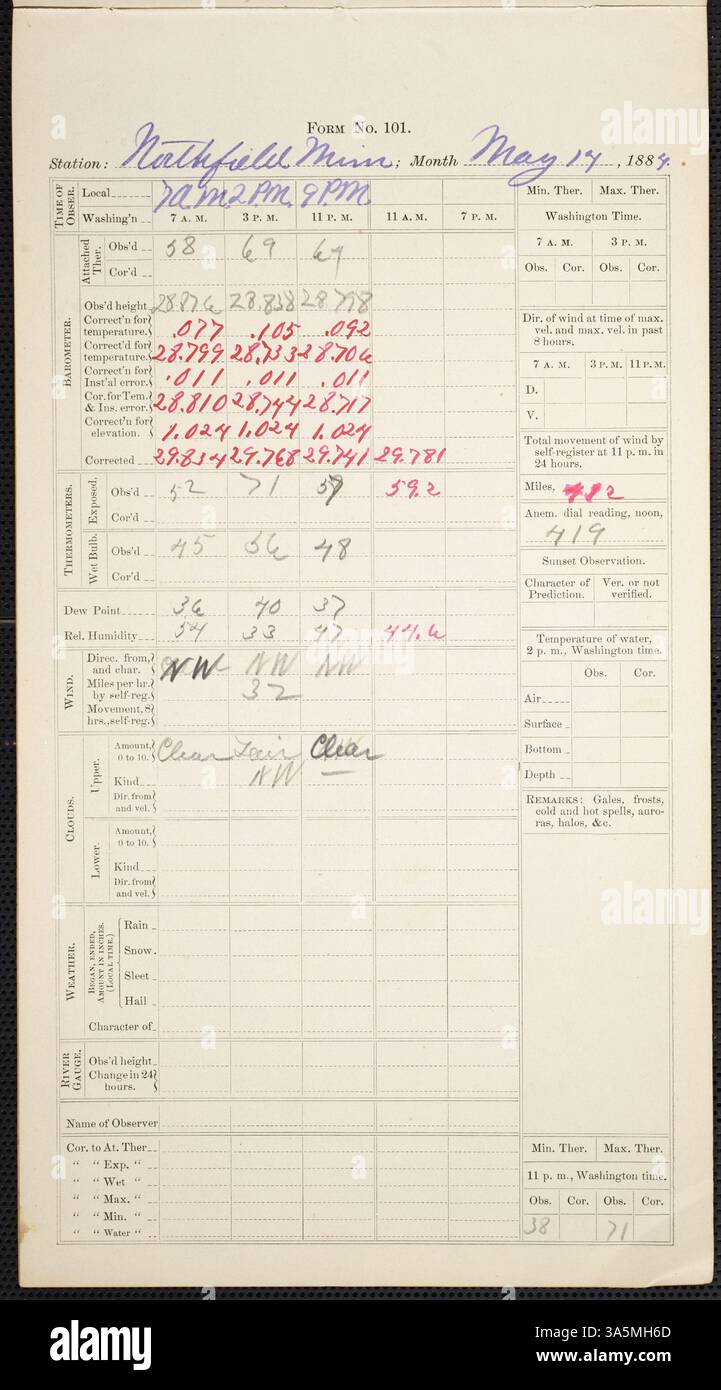 FORM NO. 101.
Station: Northfield Minn; Month May 14, 1884.
TIME OF OBSER.
Local 7 A.M. 2 P.M. 9 P.M.
Washing'n 7 A. M. 3 P. M. 11 P. M. 11 A. M. 7 P. M.
Attached Ther.
Obs'd 58 69 67
Cor'd
BAROMETER.
Obs'd height 28.876 28.838 28.798
Correct'n for temperature. .077 .105 .092
Correct'd for temperature. 28.799 28.733 28.706
Correct'n for Inst'al error. .011 .011 .011
Cor. for Tem. & Ins. error. 28.810 28.744 28.717
Correct'n for elevation. 1.024 1.024 1.024
Corrected 29.834 29.768 29.741 29.781
THERMOMETERS.
Exposed.
Obs'd 52 71 57 59.2
Cor'd
Wet Bulb.
Obs'd 45 56 48
Cor'd
Dew Point 36 40 37
Rel. Humidity 54 33 47 44.6
WIND.
Direc. from, and char. NW NW NW
Miles per hr. by self-reg. 32
Movement, 8 hrs., self-reg.
CLOUDS.
Upper.
Amount, 0 to 10. Clear Fair Clear
Kind NW —
Dir. from and vel.
Lower.
Amount, 0 to 10.
Kind
Dir. from and vel.
WEATHER.
BEGAN, ENDED, AMOUNT IN INCHES. (LOCAL TIME.)
Rain
Snow.
Sleet
Hail
Character of
RIVER GAUGE.
Obs'd height
Change in 24 hours.
Name of Observer
Cor. to At. Ther
" " Exp. "
" " Wet "
" " Max. "
" " Min. "
" " Water "
Min. Ther. Max. Ther.
Washington Time.
7 A. M. 3 P. M.
Obs. Cor. Obs. Cor.
Dir. of wind at time of max. vel. and max. vel. in past 8 hours.
7 A. M. 3 P. M. 11 P. M.
D.
V.
Total movement of wind by self-register at 11 p. m. in 24 hours.
Miles, 482
Anem. dial reading, noon,
419
Sunset Observation.
Character of Prediction. Ver. or not verified.
Temperature of water, 2 p. m., Washington time.
Obs. Cor.
Air
Surface
Bottom
Depth
REMARKS: Gales, frosts, cold and hot spells, auroras, halos, &c.
Min. Ther. Max. Ther.
11 p. m., Washington time.
Obs. Cor. Obs. Cor.
38 71
alamy
alamy
alamy
alamy
Image ID: 3A5MH6D
www.alamy.com